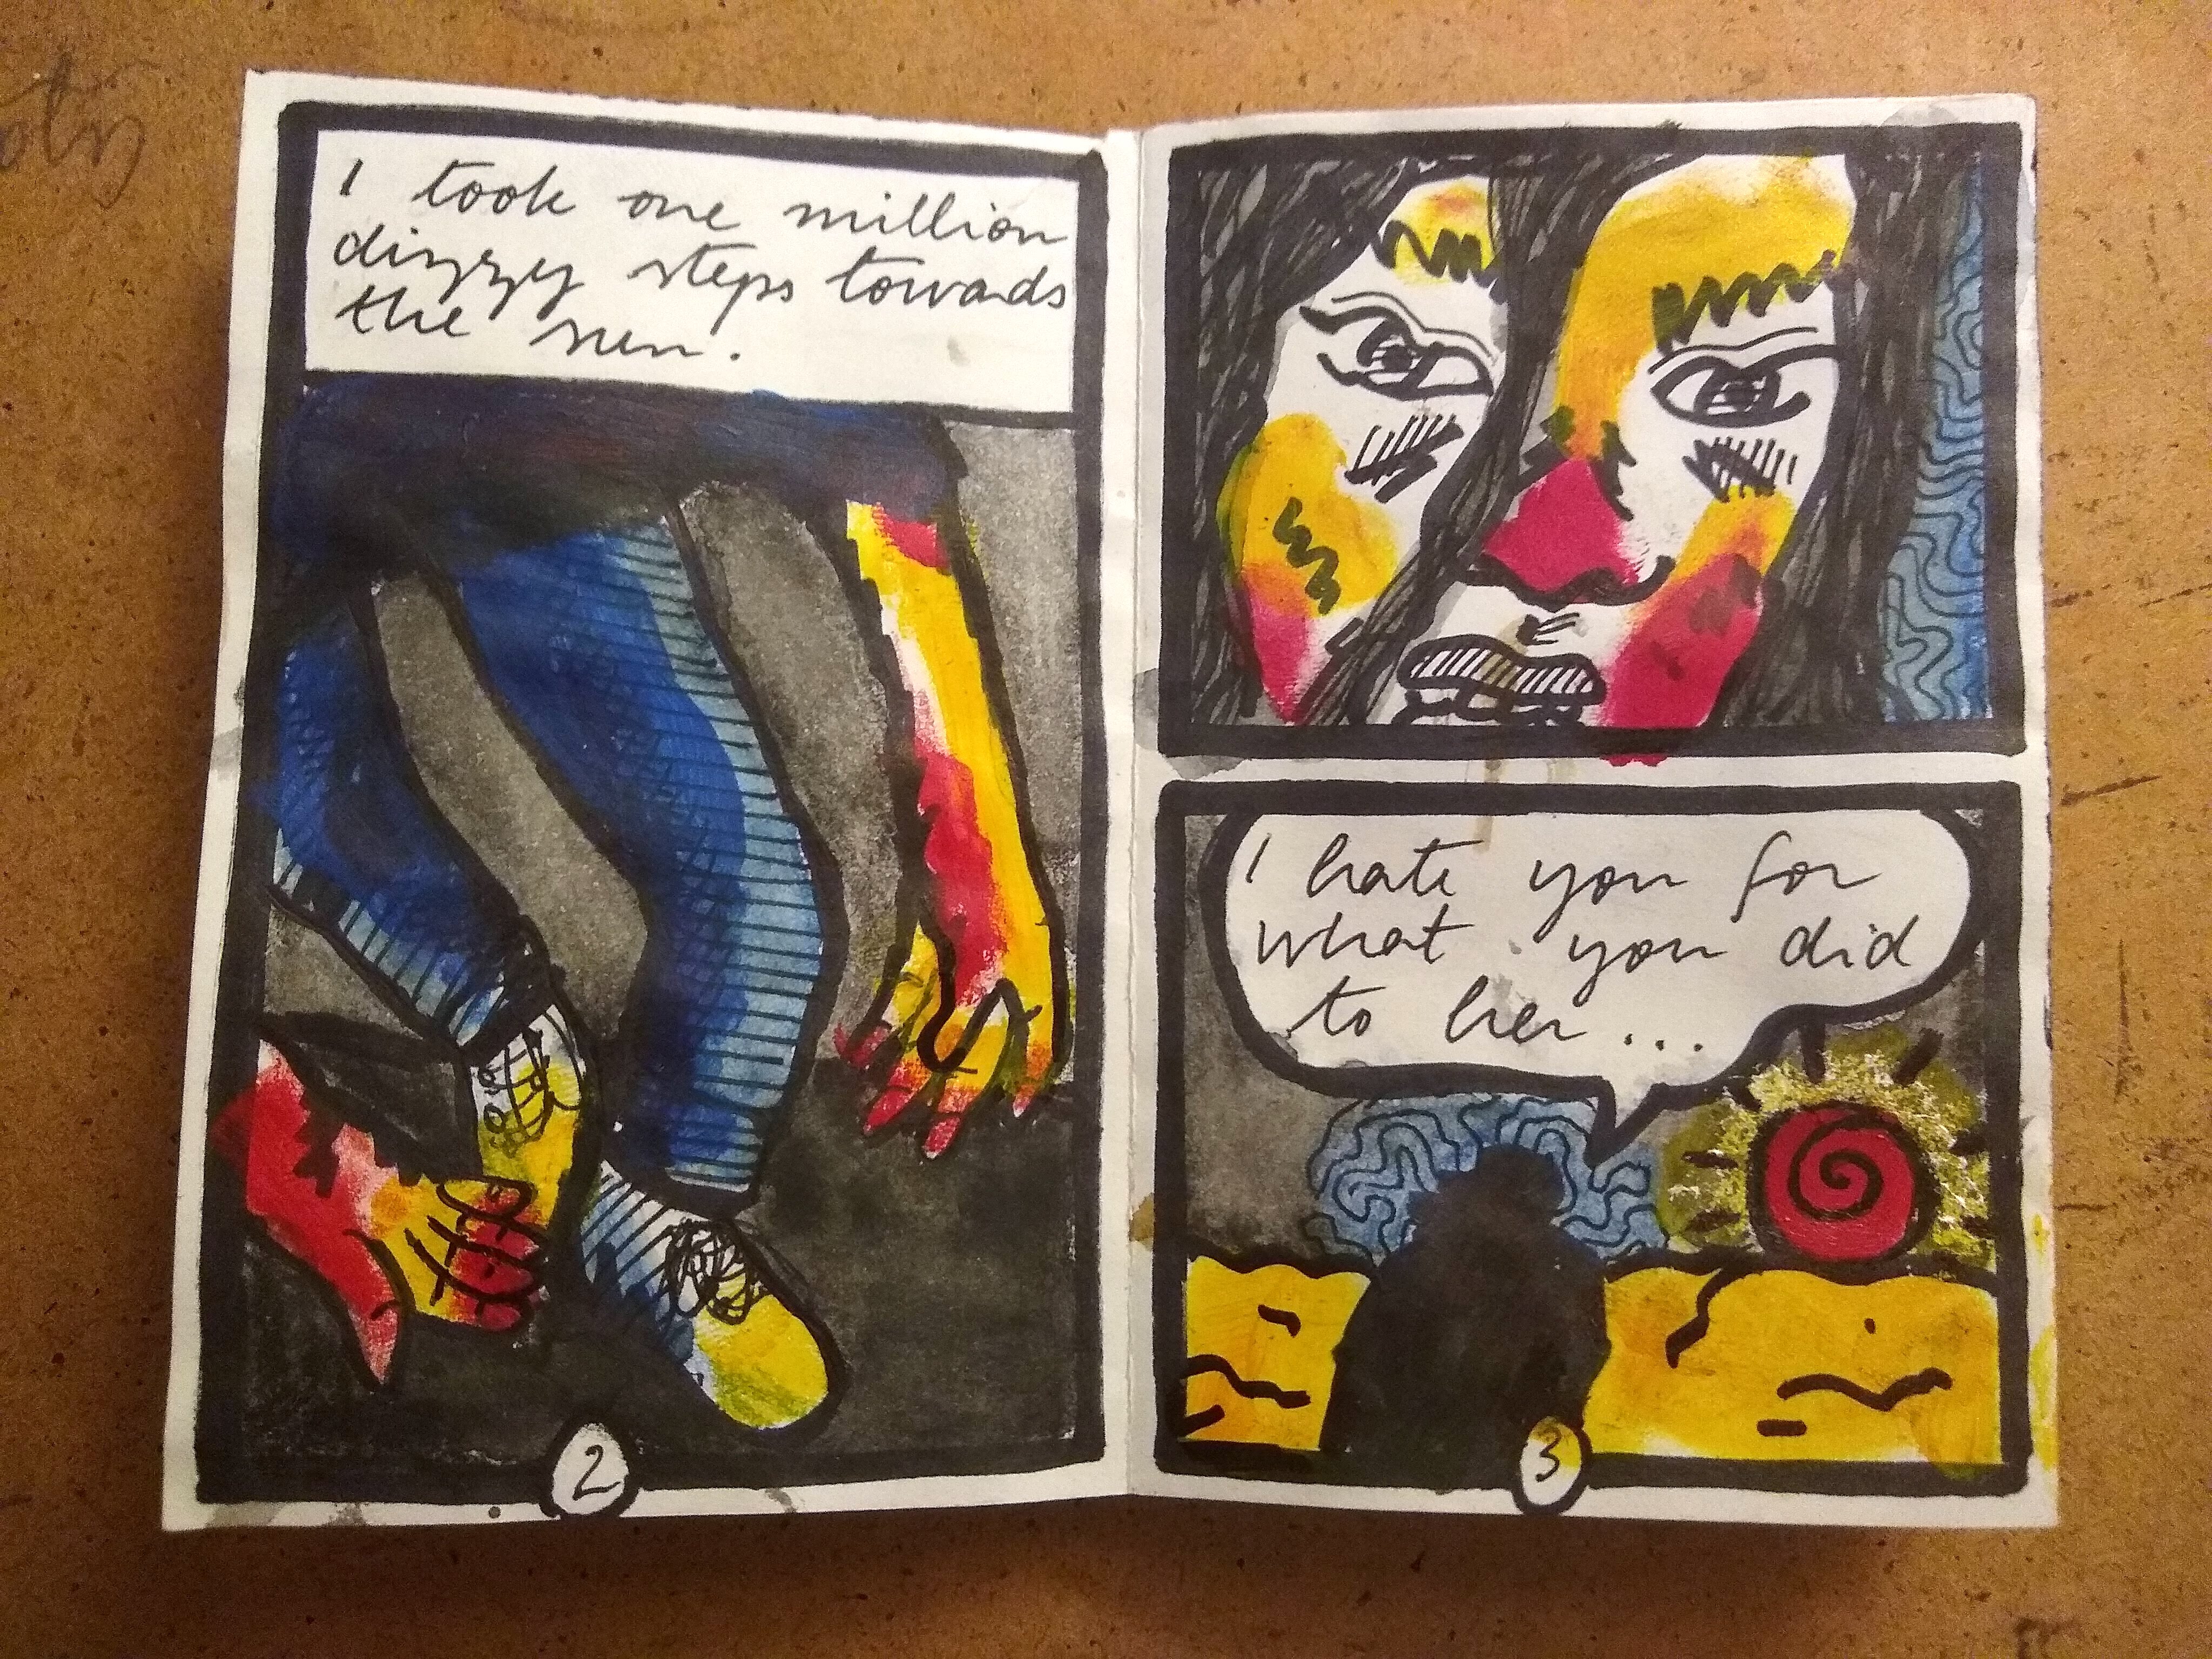 I took one million
dizzy steps towards
the sun.
2
I hate you for
what you did
to her...
3